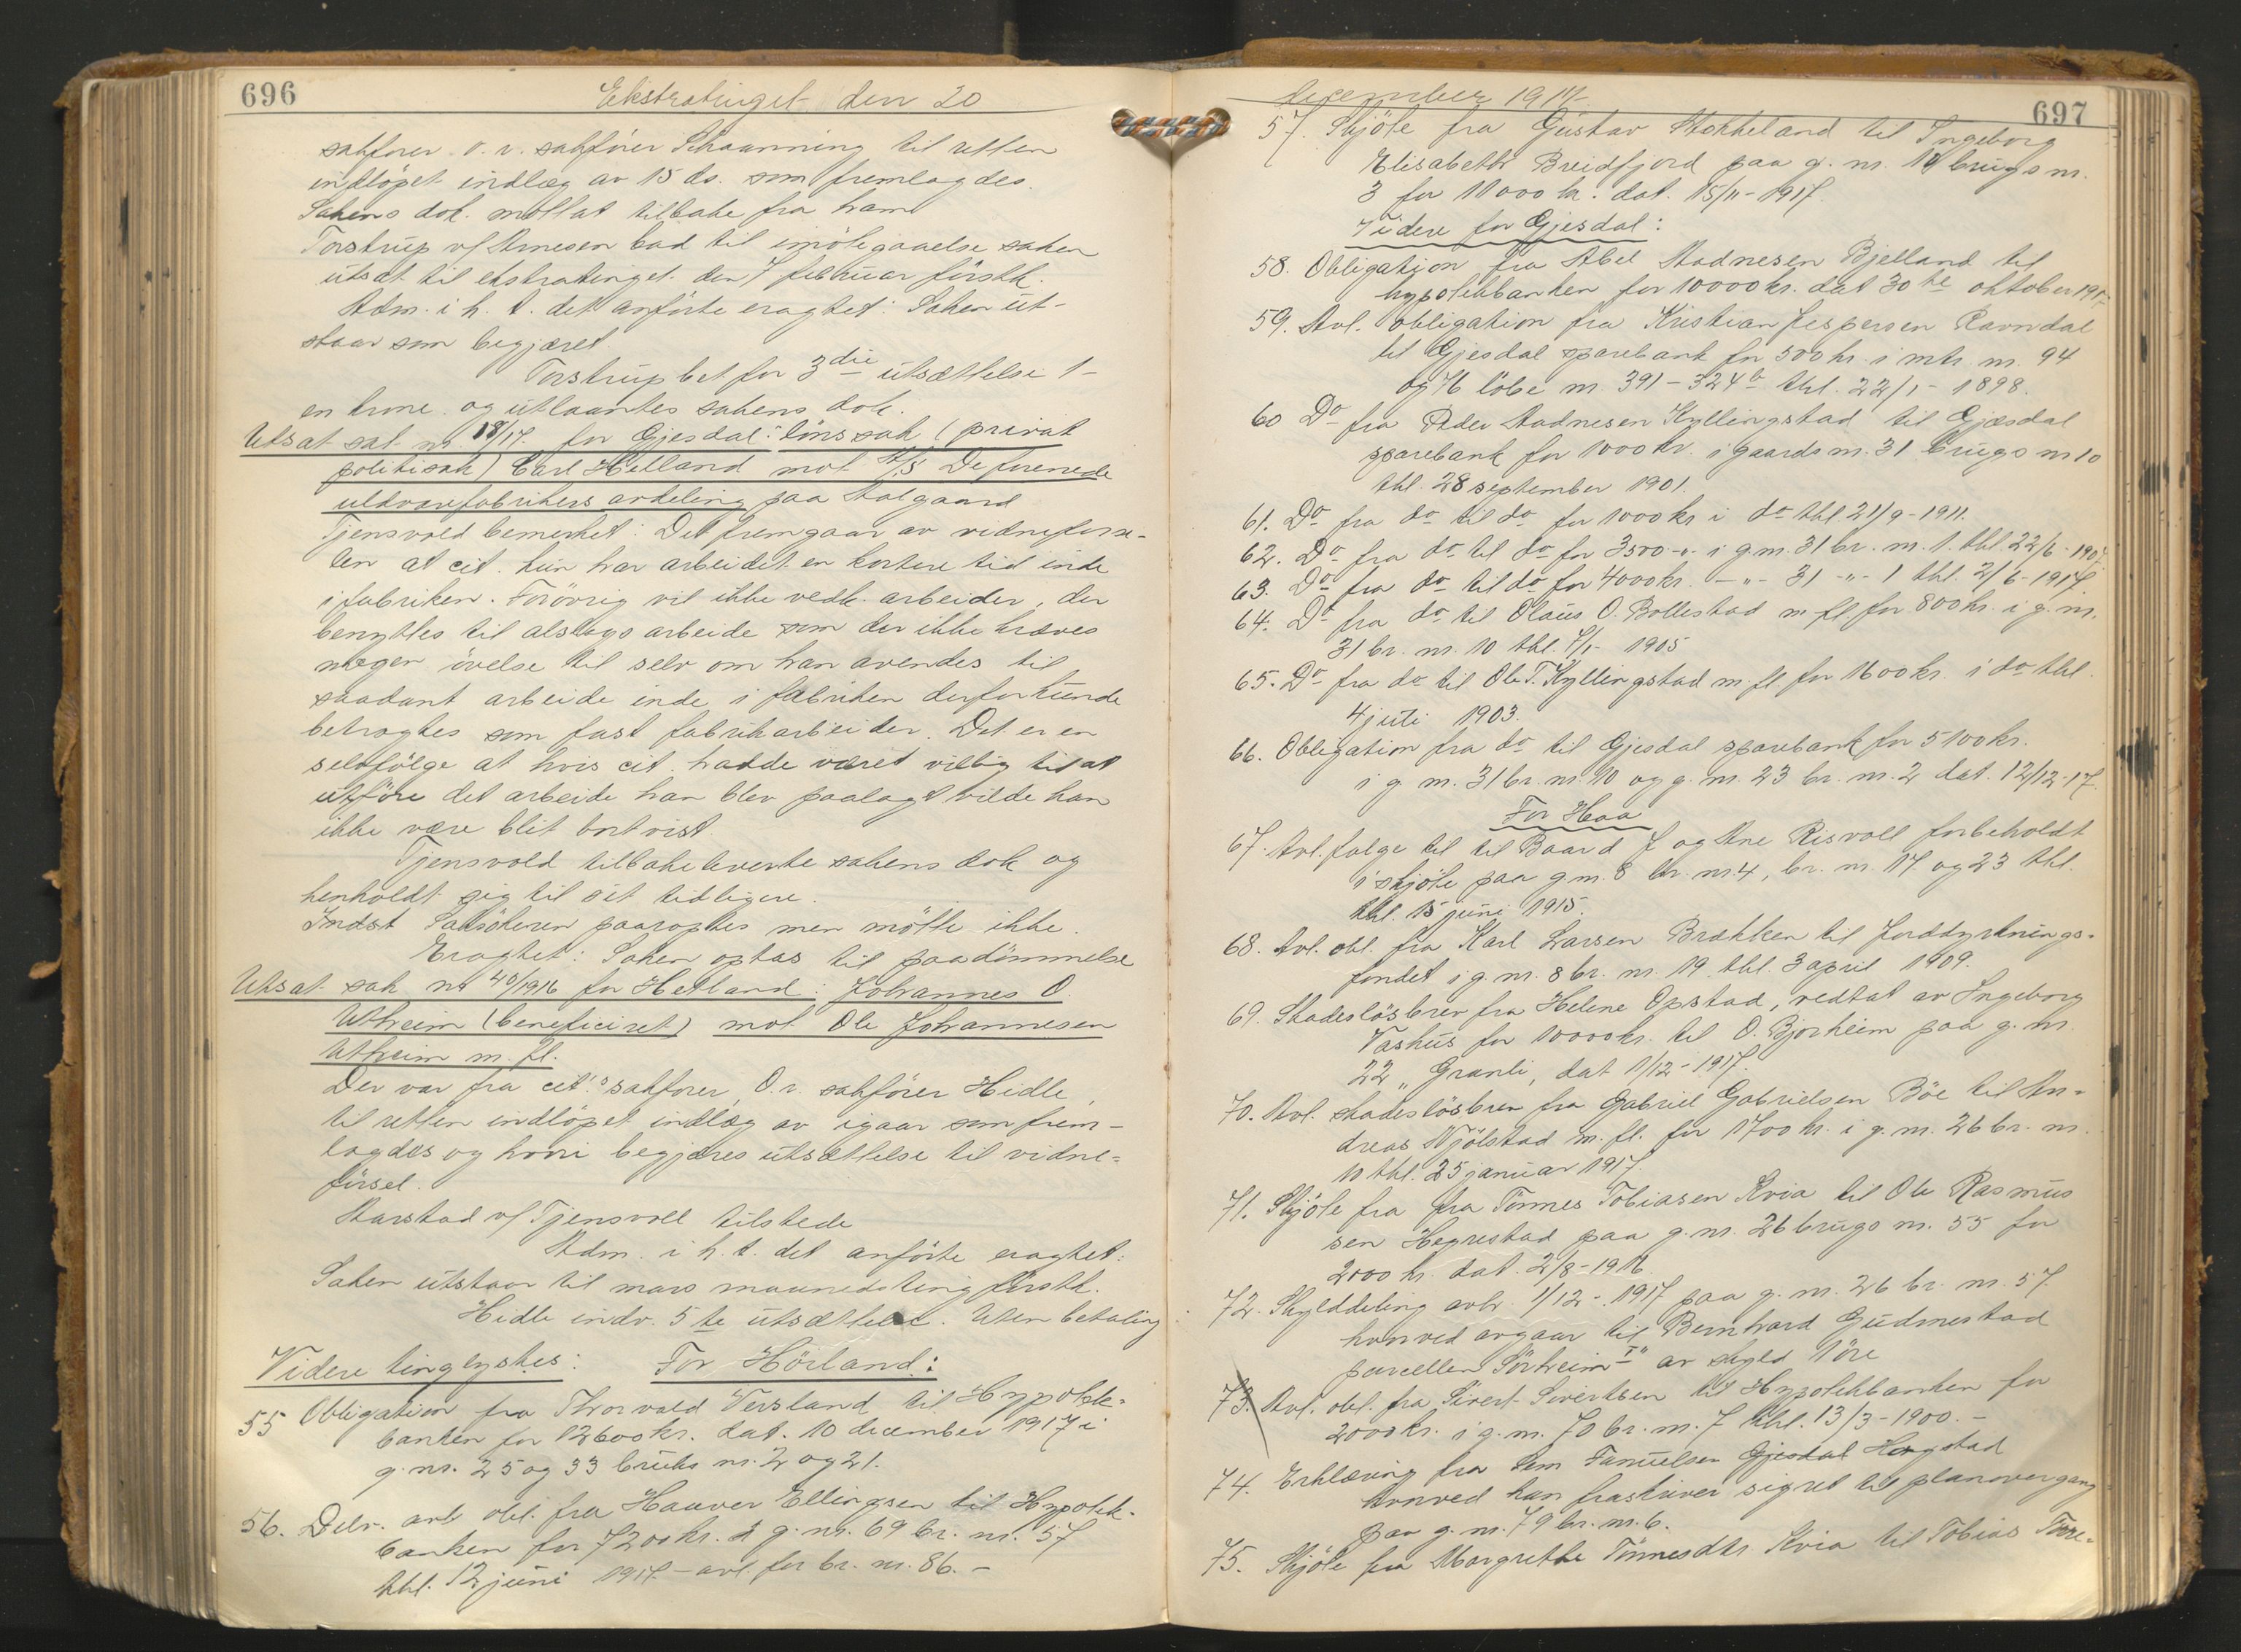 696
Ekstratinget den 20
sakfører. O. r. sakfører Schaanning til retten
indløpet indlæg av 15 ds. som fremlagdes.
Sakens dok. mottat tilbake fra ham
Torstrup v/ Arnesen bad til imøtegaaelse saken
utsat til ekstratinget den 7 februar førstk.
Adm. i h. t. det anførte eragtet: Saken ut-
staar som begjæret.
Torstrup bet for 3die utsættelse 1-
en krone og utlaantes sakens dok.
Utsat sak nr. 18/17 for Gjesdal: lønssak (privat
politisak) Carl Helland mot A/S De forenede
uldvarefabrikers avdeling paa Aalgaard
Tjensvold bemerket: Det fremgaar av vidneførse-
len at cit. kun har arbeidet en kortere tid inde
i fabriken. Forøvrig vil ikke vedk. arbeider, der
benyttes til alslags arbeide som der ikke kræves
nogen øvelse til selv om han anvendes til
saadant arbeide inde i fabriken derfor kunde
betragtes som fast fabrikarbeider. Det er en
selvfølge at hvis cit. hadde været villig til at
utføre det arbeide han blev paalagt vilde han
ikke være blit bortvist.
Tjensvold tilbakeleverte sakens dok og
henholdt sig til sit tidligere.
Indst Saksøkeren paaroptes men møtte ikke.
Eragtet: Saken optas til paadømmelse
Utsat sak nr 40/1916 for Hetland: Johannes O.
Utheim (beneficiret) mot Ole Johannesen
Utheim m. fl.
Der var fra cit.s sakfører, O. r. sakfører Hidle,
til retten indløpet indlæg av igaar som frem-
lagdes og hvori begjæres utsættelse til vidne-
førsel.
Aarstad v/ Tjensvoll tilstede
Adm. i h. t. det anførte eragtet:
Saken utstaar til mars maanedsting førstk.
Hidle indv. 5te utsættelse. Uten betaling
Videre tinglystes: For Høiland:
55 Obligation fra Thorvald Versland til Hypotek-
banken for 12600 kr. dat. 10 december 1917 i
g. nr. 25 og 33 bruks nr. 2 og 21.
56. Delv. avl obl. fra Hauver Ellingsen til Hypotek-
banken for 7200 kr. i g. nr. 69 br. nr. 57
thl. 12 juni 1917 - avl. for br. nr. 86. -
december 1917
697
57. Skjøte fra Gustav Stokkeland til Ingeborg
Elisabeth Breidfjord paa g. nr. 11 brugs nr.
3 for 11000 kr. dat. 15/11-1917.
Videre for Gjesdal:
58. Obligation fra Abel Aadnesen Bjelland til
hypotekbanken for 10000 kr. dat 30te oktober 1917
59. Avl. obligation fra Kristian Jespersen Ravndal
til Gjesdal sparebank for 500 kr. i mtr. nr. 94
og 76 løbe nr. 391-324b thl. 22/1-1898.
60 Do fra Peder Aadnesen Kyllingstad til Gjæsdal
sparebank for 1000 kr. i gaards nr. 31 brugs nr 10
thl. 28 september 1901.
61. Do fra do til do for 1000 kr i do thl 21/9-1911.
62. Do fra do til do for 3500 -"- i g nr. 31 br. nr. 1. thl 22/6-1907
63. Do fra do til do for 4000 kr. -"- 31 -"- 1 thl. 2/6-1917
64. Do fra do til Olaus O. Bollestad m fl for 800 kr. i g. nr.
31 br. nr. 10 thl. 7/1-1905
65. Do fra do til Ole T. Kyllingstad m. fl for 1600 kr. i do thl.
4 juli 1903.
66. Obligation fra do til Gjesdal sparebank for 5100 kr.
i g nr. 31 br. nr 10 og g. nr. 23 br. nr. 2 dat. 12/12-17.
For Haa
67. Avl. følge til til Baard J og Ane Risvoll forbeholdt
i skjøte paa g nr. 8 br. nr 4, br. nr. 17 og 23 thl.
thl. 15 juni 1915.
68. Avl. obl. fra Karl Larsen Brækken til Jorddyrknings-
fondet i g. nr. 8 br. nr. 19. thl. 3 april 1909.
69. Skadesløsbrev fra Helene Opstad, vedtat av Ingeborg
Vashus for 10000 kr. til O. Bjorheim paa g. nr.
22 „ Granli, dat 1/12-1917.
70. Avl. skadesløsbrev fra Gabriel Gabrielsen Bøe til An-
dreas Njølstad m. fl. for 1700 kr. i g. nr. 26 br. nr.
10 thl. 25 januar 1917.
71. Skjøte fra fra Tønnes Tobiasen Kvia til Ole Rasmus
sen Hegrestad paa g. nr. 26 brugs nr. 55 for
2000 kr. dat. 2/8-1916.
72. Skylddeling avh. 1/12-1917 paa g. nr. 26 br. nr. 57
hvorved avgaar til Bernhard Gudmestad
parcellen Sørheim I" av skyld 1 øre
73. Avl. obl. fra Sivert Sivertsen til Hypotekbanken for
2000 kr. i g. nr. 70 br. nr. 7 thl. 13/3-1900. -
74. Erklæring fra Sem Samuelsen Gjesdal Hogstad
hvorved han fraskriver sig ret til planovergang
paa g. nr. 79 br. nr. 6.
75. Skjøte fra Margrethe Tønnesdtr. Kvia til Tobias Tore-